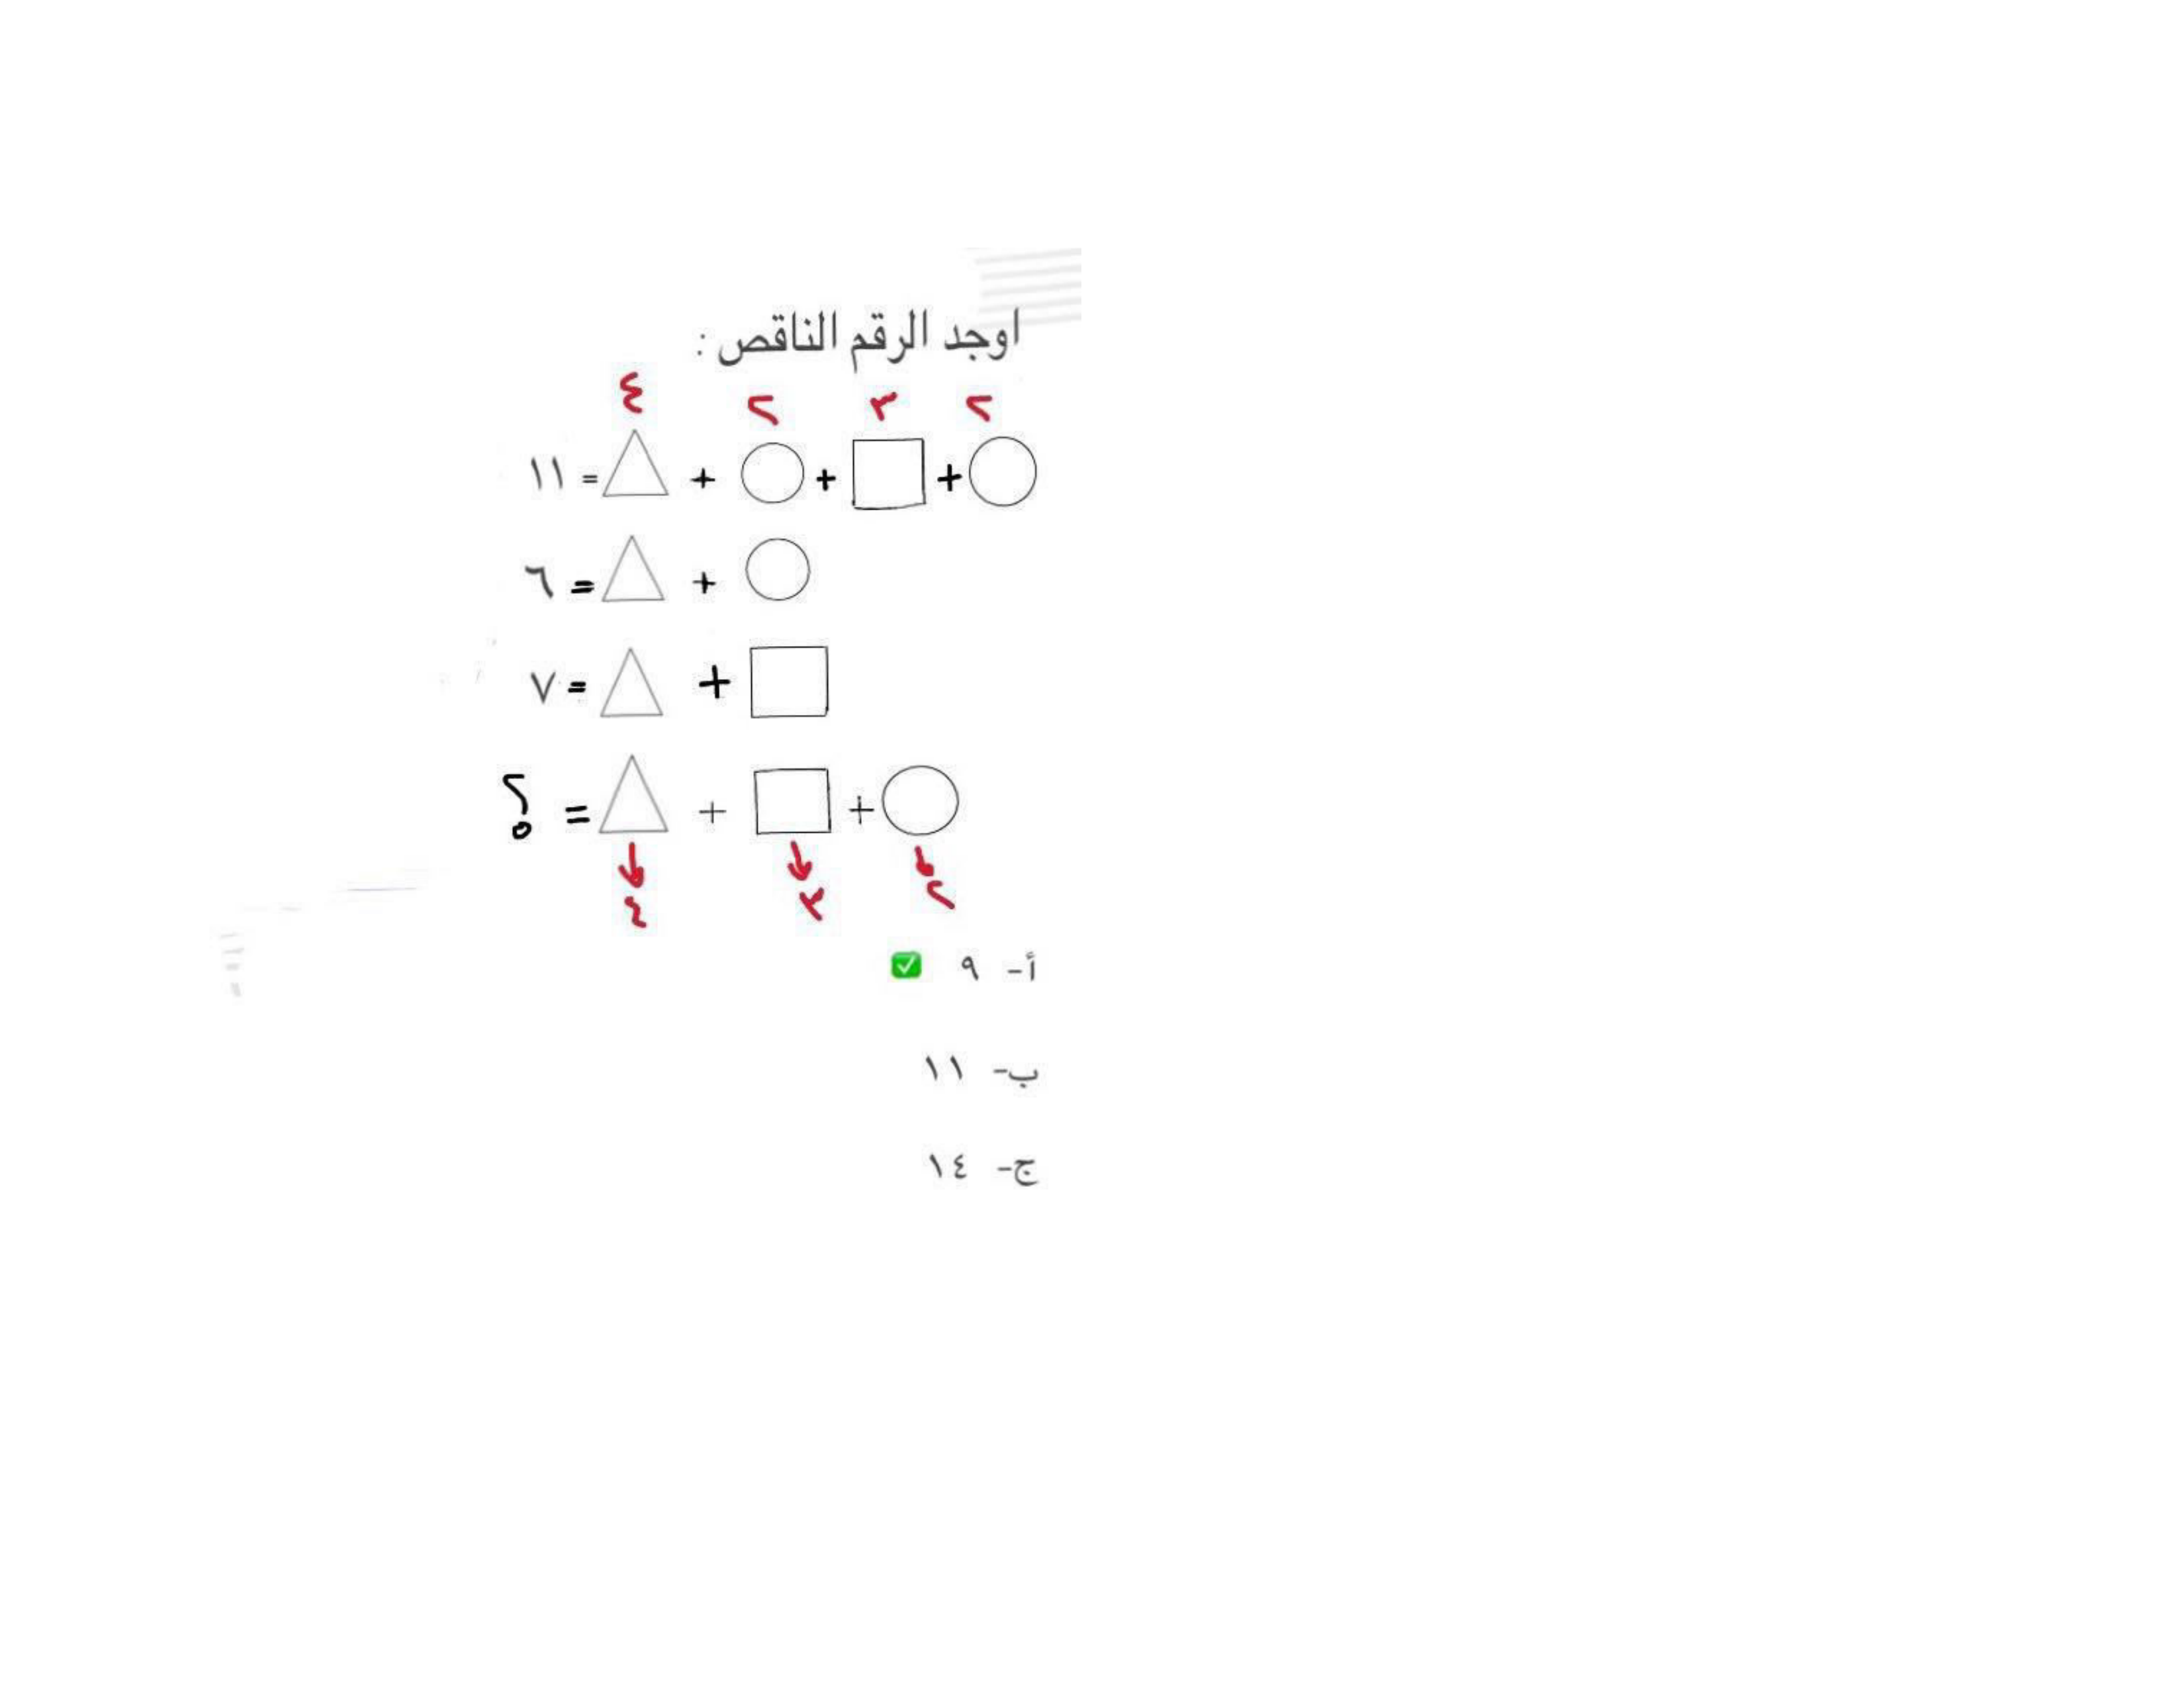 اوجد الرقم الناقص :
٢ ٣ ٢ ٤
○ + □ + ○ + △ = ١١
○ + △ = ٦
□ + △ = ٧
○ + □ + △ = ؟
٢ ٣ ٤
أ- ٩ ✅
ب- ١١
ج- ١٤